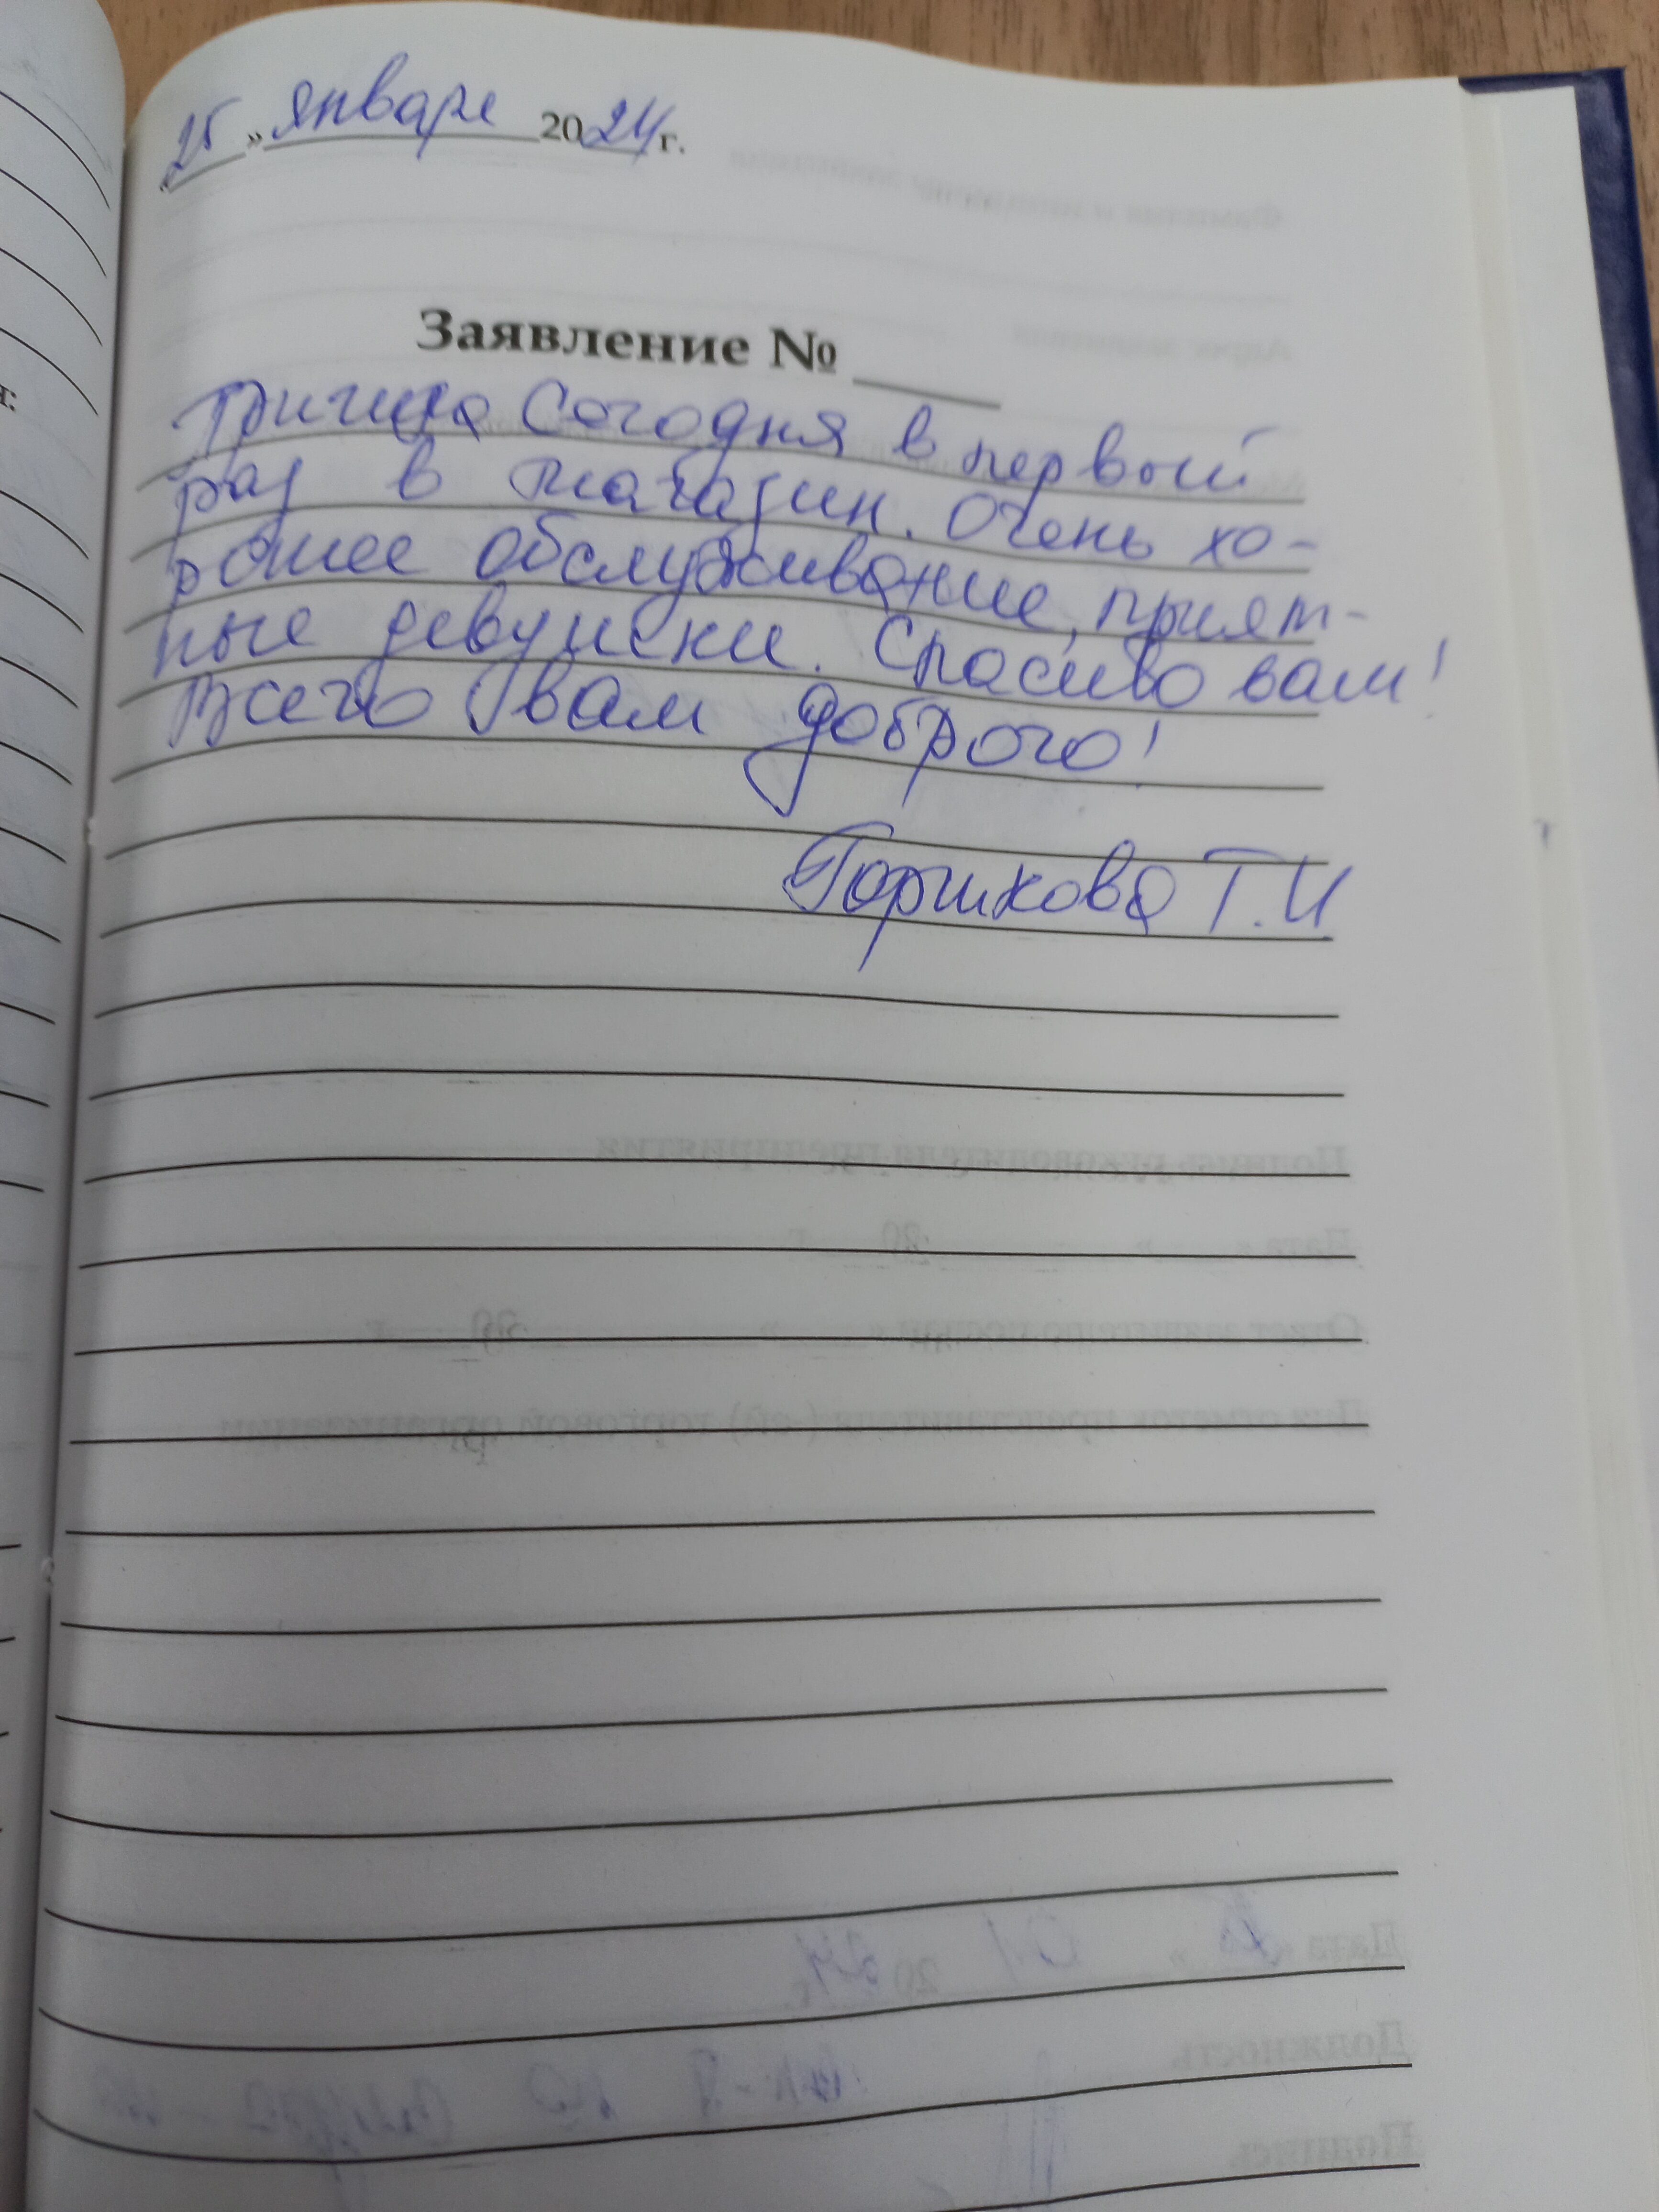 «25» января 2024 г.
Заявление №
Пришла Сегодня в первый
раз в магазин. Очень хо-
рошее обслуживание, прият-
ные девушки. Спасибо вам!
Всего вам доброго!
Горшкова Т.И